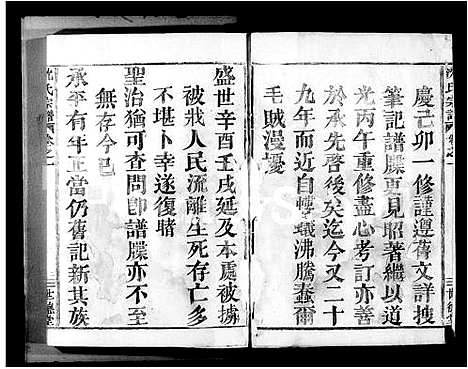 沈氏宗譜
卷之一
慶己卯一修謹遵舊文詳搜
筆記譜牒更見昭著繼以道
光丙午重修盡心考訂亦善
於承先啓後矣迄今又二十
九年而近自髆蟻沸騰蠢爾
毛賊漫擾
盛世辛酉壬戌延及本處被擄
被戕人民流離生死存亡多
不堪卜幸遂復睹
聖治猶可查問卽譜牒亦不
無存今已
承平有年正當仍舊記新其族
沈氏宗譜
卷之一